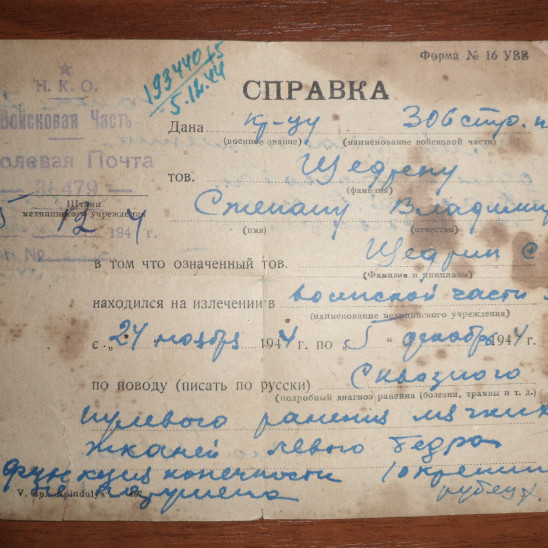 Форма № 16 УВВ
193440
5.12.44
СПРАВКА
★
Н. К. О.
Войсковая Часть
олевая Почта
— 36479 —
Штамп
медицинского учреждения
5 12 1944 г.
Дана кр-цу 306 стр. п
(военное звание) (наименование войсковой части)
тов. Щедрину
(фамилия)
Степану Владимир
(имя) (отчество)
в том что означенный тов. Щедрин С
(Фамилия и инициалы)
находился на излечении в воинской части
(наименование медицинского учреждения)
с „24 ноября 1944 г. по „5 “ декабря 1944 г.
по поводу (писать по русски) Сквозного
(подробный диагноз ранения (болезни, травмы и т. д.)
пулевого ранения мягких
тканей левого бедра
функция конечности
не нарушена рубец
V. Sp. „Spindulys“